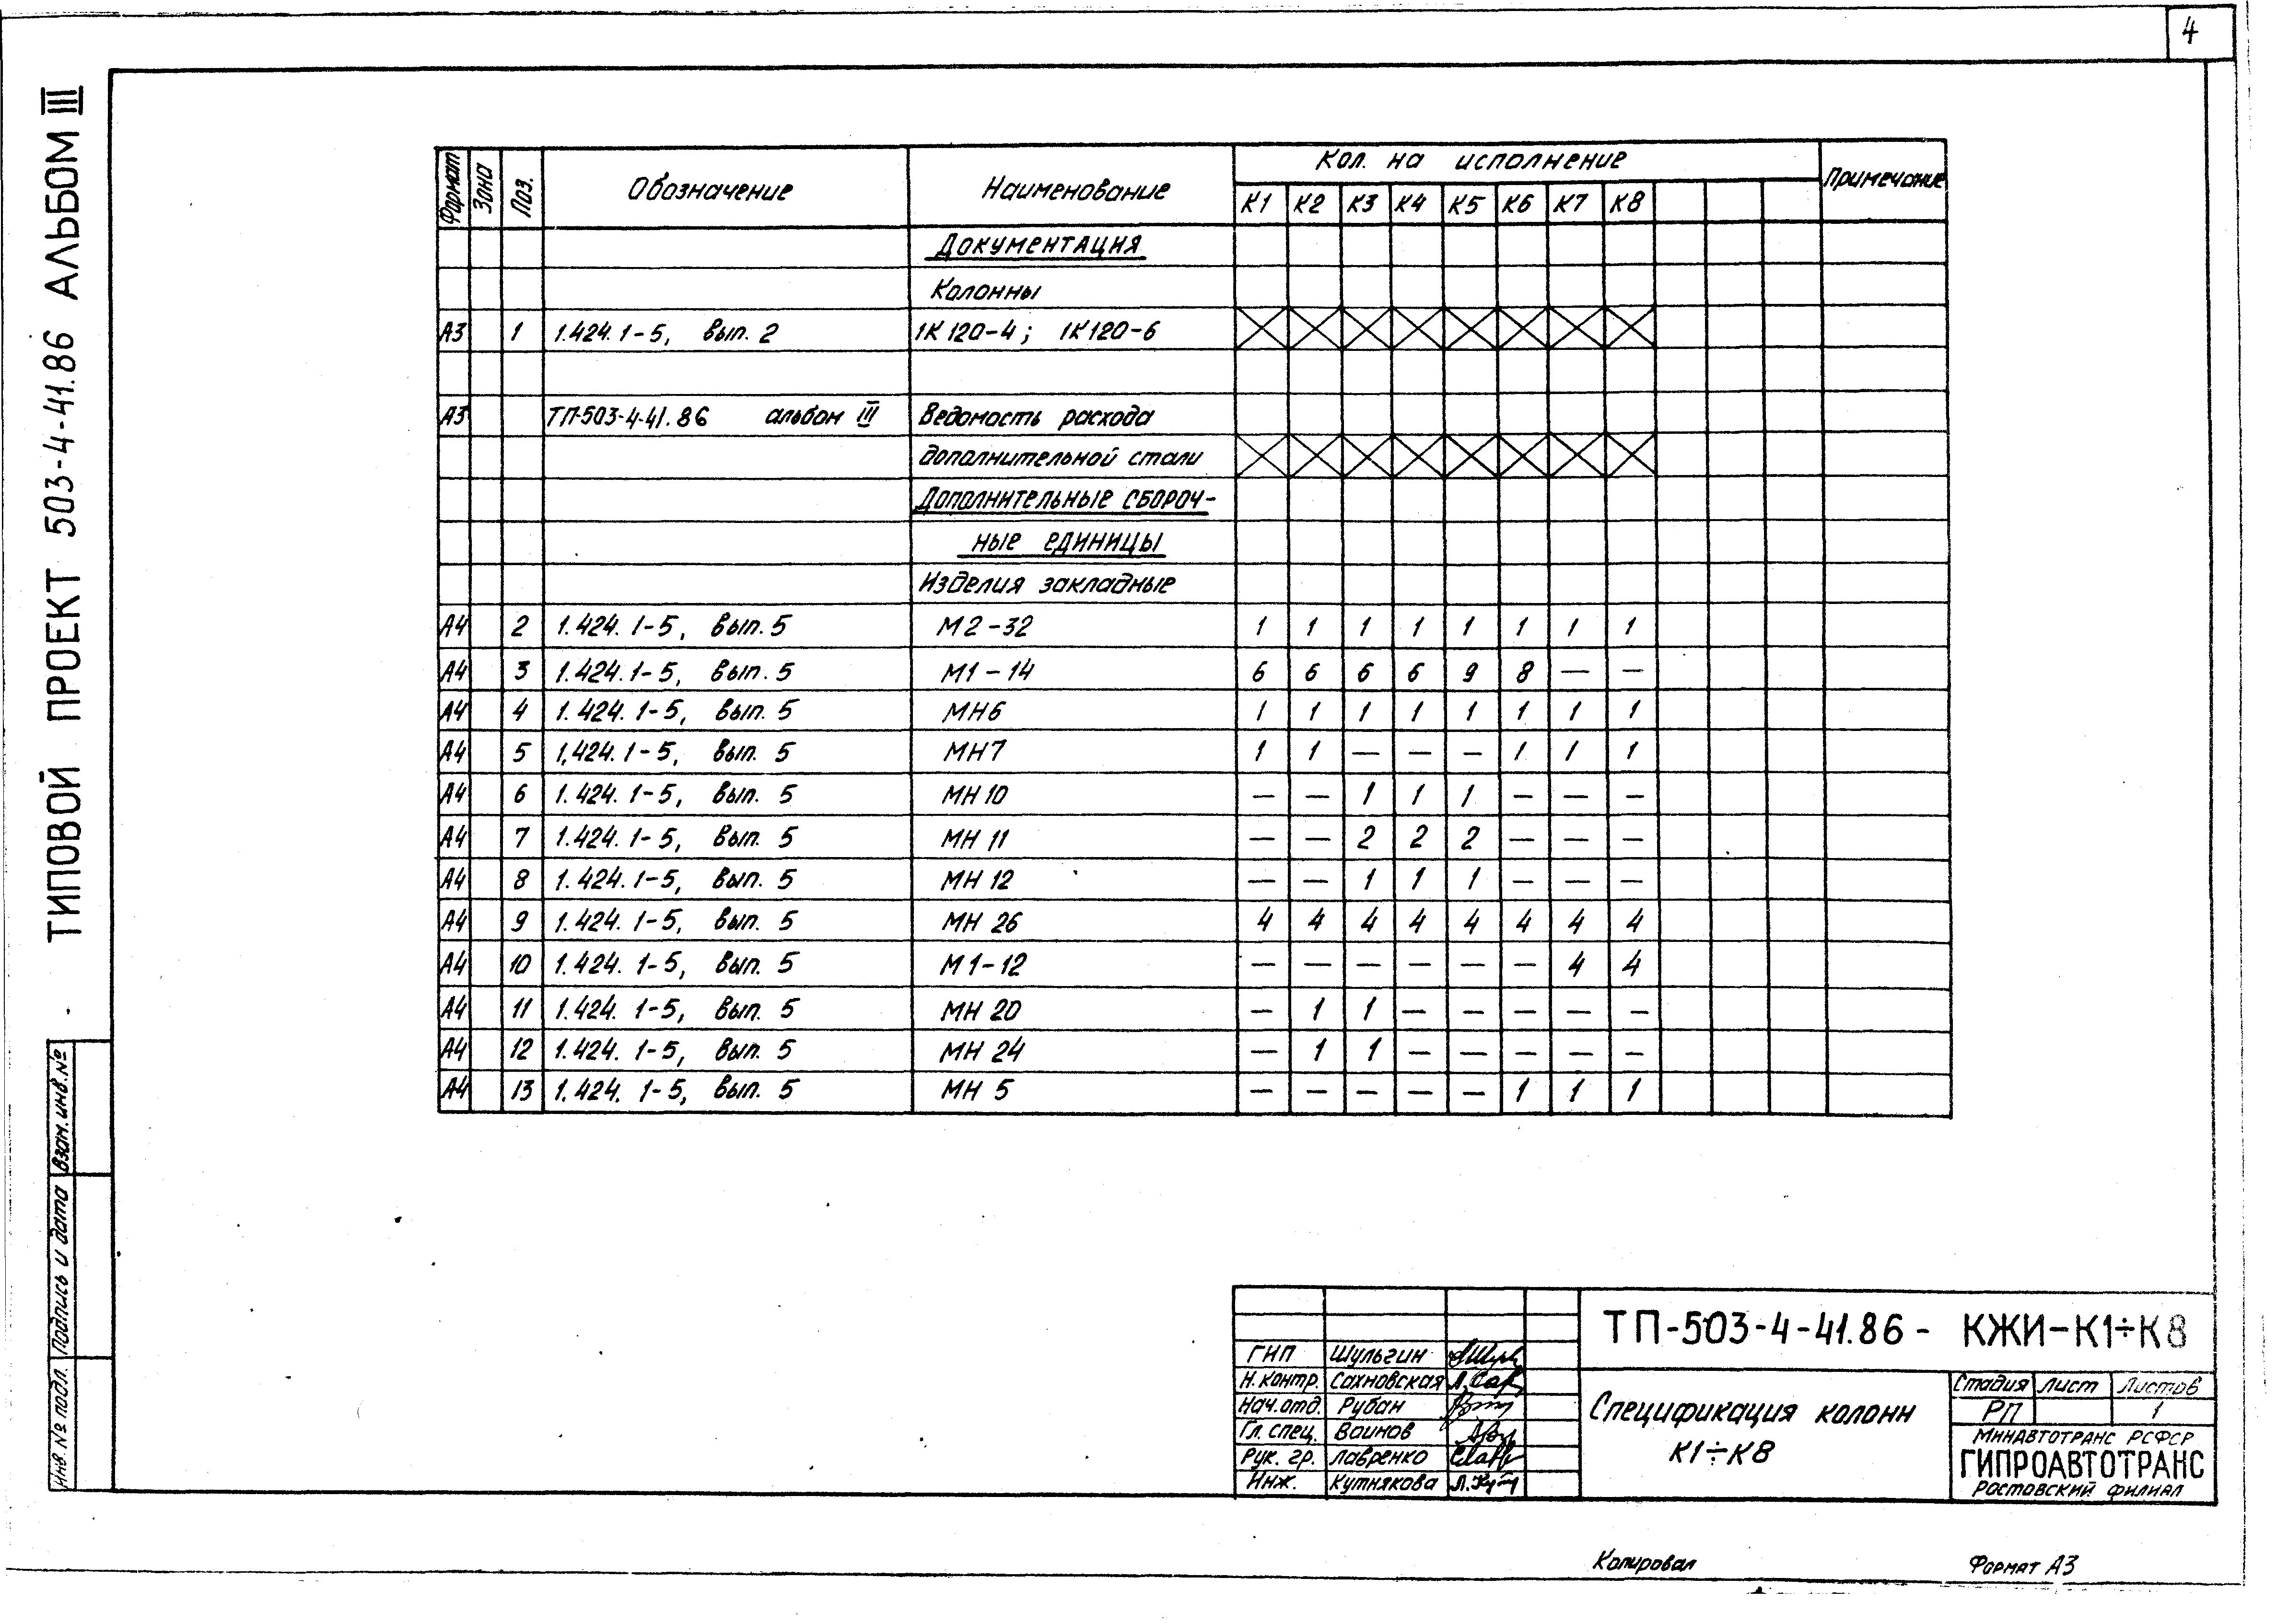 4
ТИПОВОЙ ПРОЕКТ 503-4-41.86 АЛЬБОМ III
Формат Зона Поз. Обозначение Наименование Кол. на исполнение Примечание
К1 К2 К3 К4 К5 К6 К7 К8
ДОКУМЕНТАЦИЯ
Колонны
А3 1 1.424.1-5, вып. 2 1К120-4; 1К120-6
А3 ТП-503-4-41.86 альбом III Ведомость расхода
дополнительной стали
ДОПОЛНИТЕЛЬНЫЕ СБОРОЧ-
НЫЕ ЕДИНИЦЫ
Изделия закладные
А4 2 1.424.1-5, вып. 5 М2-32 1 1 1 1 1 1 1 1
А4 3 1.424.1-5, вып. 5 М1-14 6 6 6 6 9 8 — —
А4 4 1.424.1-5, вып. 5 МН6 1 1 1 1 1 1 1 1
А4 5 1,424.1-5, вып. 5 МН7 1 1 — — — 1 1 1
А4 6 1.424.1-5, вып. 5 МН 10 — — 1 1 1 — — —
А4 7 1.424.1-5, вып. 5 МН 11 — — 2 2 2 — — —
А4 8 1.424.1-5, вып. 5 МН 12 — — 1 1 1 — — —
А4 9 1.424.1-5, вып. 5 МН 26 4 4 4 4 4 4 4 4
А4 10 1.424.1-5, вып. 5 М1-12 — — — — — — 4 4
А4 11 1.424.1-5, вып. 5 МН 20 — 1 1 — — — — —
А4 12 1.424.1-5, вып. 5 МН 24 — 1 1 — — — — —
А4 13 1.424.1-5, вып. 5 МН 5 — — — — — 1 1 1
Взам.инв.№
Подпись и дата
Инв.№ подл.
ТП-503-4-41.86- КЖИ-К1÷К8
ГИП Шульгин
Н.контр. Сахновская
Нач.отд. Рубан
Гл.спец. Воинов
Рук. гр. Лавренко
Инж. Кутнякова
Спецификация колонн
К1÷К8
Стадия Лист Листов
РП 1
МИНАВТОТРАНС РСФСР
ГИПРОАВТОТРАНС
Ростовский филиал
Копировал Формат А3